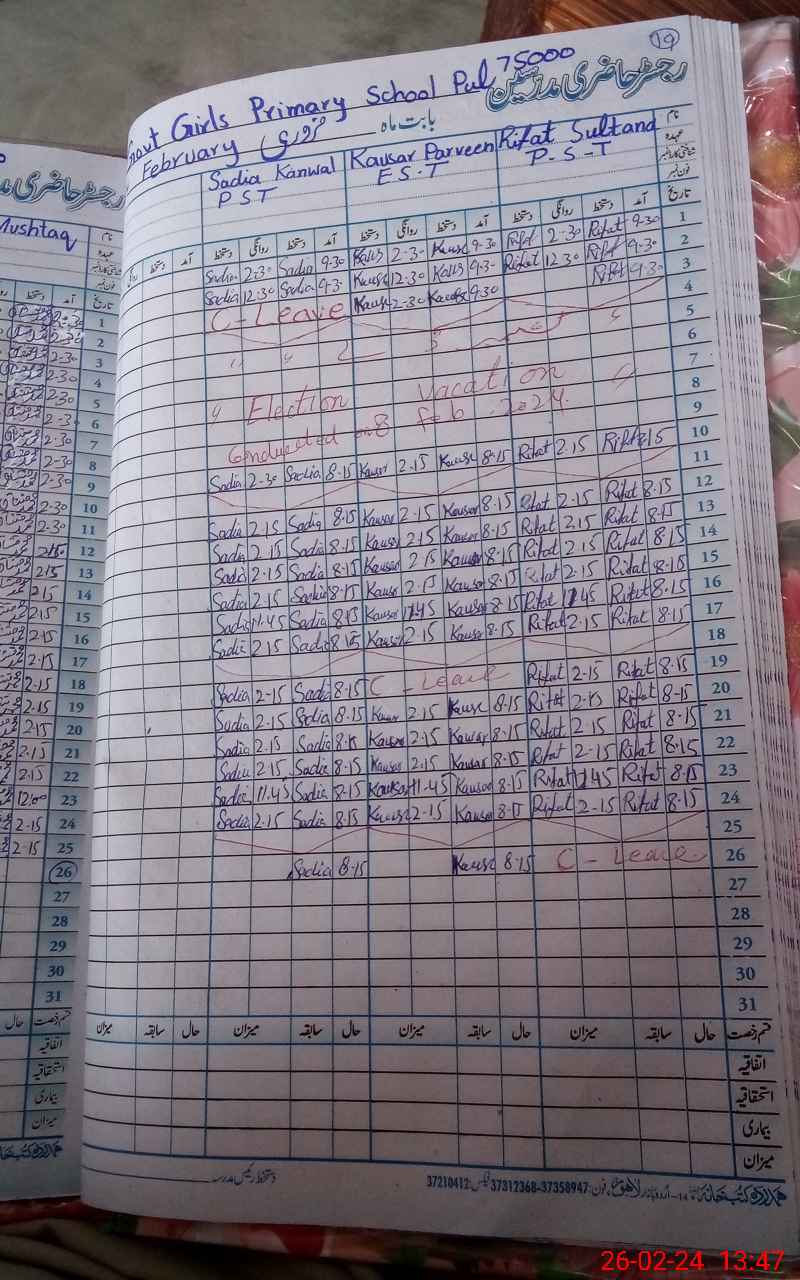 19
Govt Girls Primary School Pul 75000
رجسٹر حاضری مدرسین
February فروری بابت ماہ
Sadia Kanwal Kausar Parveen Rifat Sultana نام
PST EST P-S-T عہدہ
شناختی کارڈ نمبر
فون نمبر
دستخط روانگی دستخط آمد دستخط روانگی دستخط آمد دستخط روانگی دستخط آمد تاریخ
Sadia 2-30 Sadia 9-30 Kausr 2-30 Kausr 9-30 Rifat 2-30 Rifat 9-30 1
Sadia 12-30 Sadia 9-30 Kausr 12-30 Kausr 9-30 Rifat 12-30 Rifat 9-30 2
C-Leave Kausr 2-30 Kausr 9-30 Rifat 9-30 3
4
5
6
7
Election vacation 8
Conducted on 8 feb. 2024. 9
Sadia 2-30 Sadia 8-15 Kausar 2-15 Kausr 8-15 Rifat 2-15 Rifat 8-15 10
11
Sadia 2-15 Sadia 8-15 Kausar 2-15 Kausar 8-15 Rifat 2-15 Rifat 8-15 12
Sadia 2-15 Sadia 8-15 Kausar 2-15 Kausar 8-15 Rifat 2-15 Rifat 8-15 13
Sadia 2-15 Sadia 8-15 Kausar 2-15 Kausar 8-15 Rifat 2-15 Rifat 8-15 14
Sadia 2-15 Sadia 8-15 Kausr 2-15 Kausar 8-15 Rifat 2-15 Rifat 8-15 15
Sadia 11-45 Sadia 8-15 Kausar 11-45 Kausar 8-15 Rifat 11-45 Rifat 8-15 16
Sadia 2-15 Sadia 8-15 Kausar 2-15 Kausr 8-15 Rifat 2-15 Rifat 8-15 17
18
Sadia 2-15 Sadia 8-15 C-Leave Rifat 2-15 Rifat 8-15 19
Sadia 2-15 Sadia 8-15 Kausr 2-15 Kausr 8-15 Rifat 2-15 Rifat 8-15 20
Sadia 2-15 Sadia 8-15 Kausar 2-15 Kausar 8-15 Rifat 2-15 Rifat 8-15 21
Sadia 2-15 Sadia 8-15 Kausar 2-15 Kausar 8-15 Rifat 2-15 Rifat 8-15 22
Sadia 11-45 Sadia 8-15 Kausar 11-45 Kausar 8-15 Rifat 11-45 Rifat 8-15 23
Sadia 2-15 Sadia 8-15 Kausr 2-15 Kausar 8-15 Rifat 2-15 Rifat 8-15 24
25
Sadia 8-15 Kausr 8-15 C-Leave 26
27
28
29
30
31
میزان سابقہ حال میزان سابقہ حال میزان سابقہ حال میزان سابقہ حال قسم رخصت
اتفاقیہ
استحقاقیہ
بیماری
میزان
دستخط رئیس مدرسہ
ہمدرد کتب خانہ 14-اردو بازار لاہور، فون: 37358947-37312368 فیکس: 37210412
رجسٹر حاضری
Mushtaq نام
عہدہ
شناختی کارڈ نمبر
فون نمبر
دستخط آمد تاریخ
2-30 1
2-30 2
2-30 3
2-30 4
2-30 5
2-30 6
2-30 7
2-30 8
2-30 9
2-30 10
2-30 11
2-15 12
2-15 13
2-15 14
2-15 15
2-15 16
2-15 17
2-15 18
2-15 19
2-15 20
2-15 21
2-15 22
12:00 23
2-15 24
2-15 25
26
27
28
29
30
31
حال قسم رخصت
اتفاقیہ
استحقاقیہ
بیماری
میزان
ہمدرد کتب خانہ
26-02-24 13:47